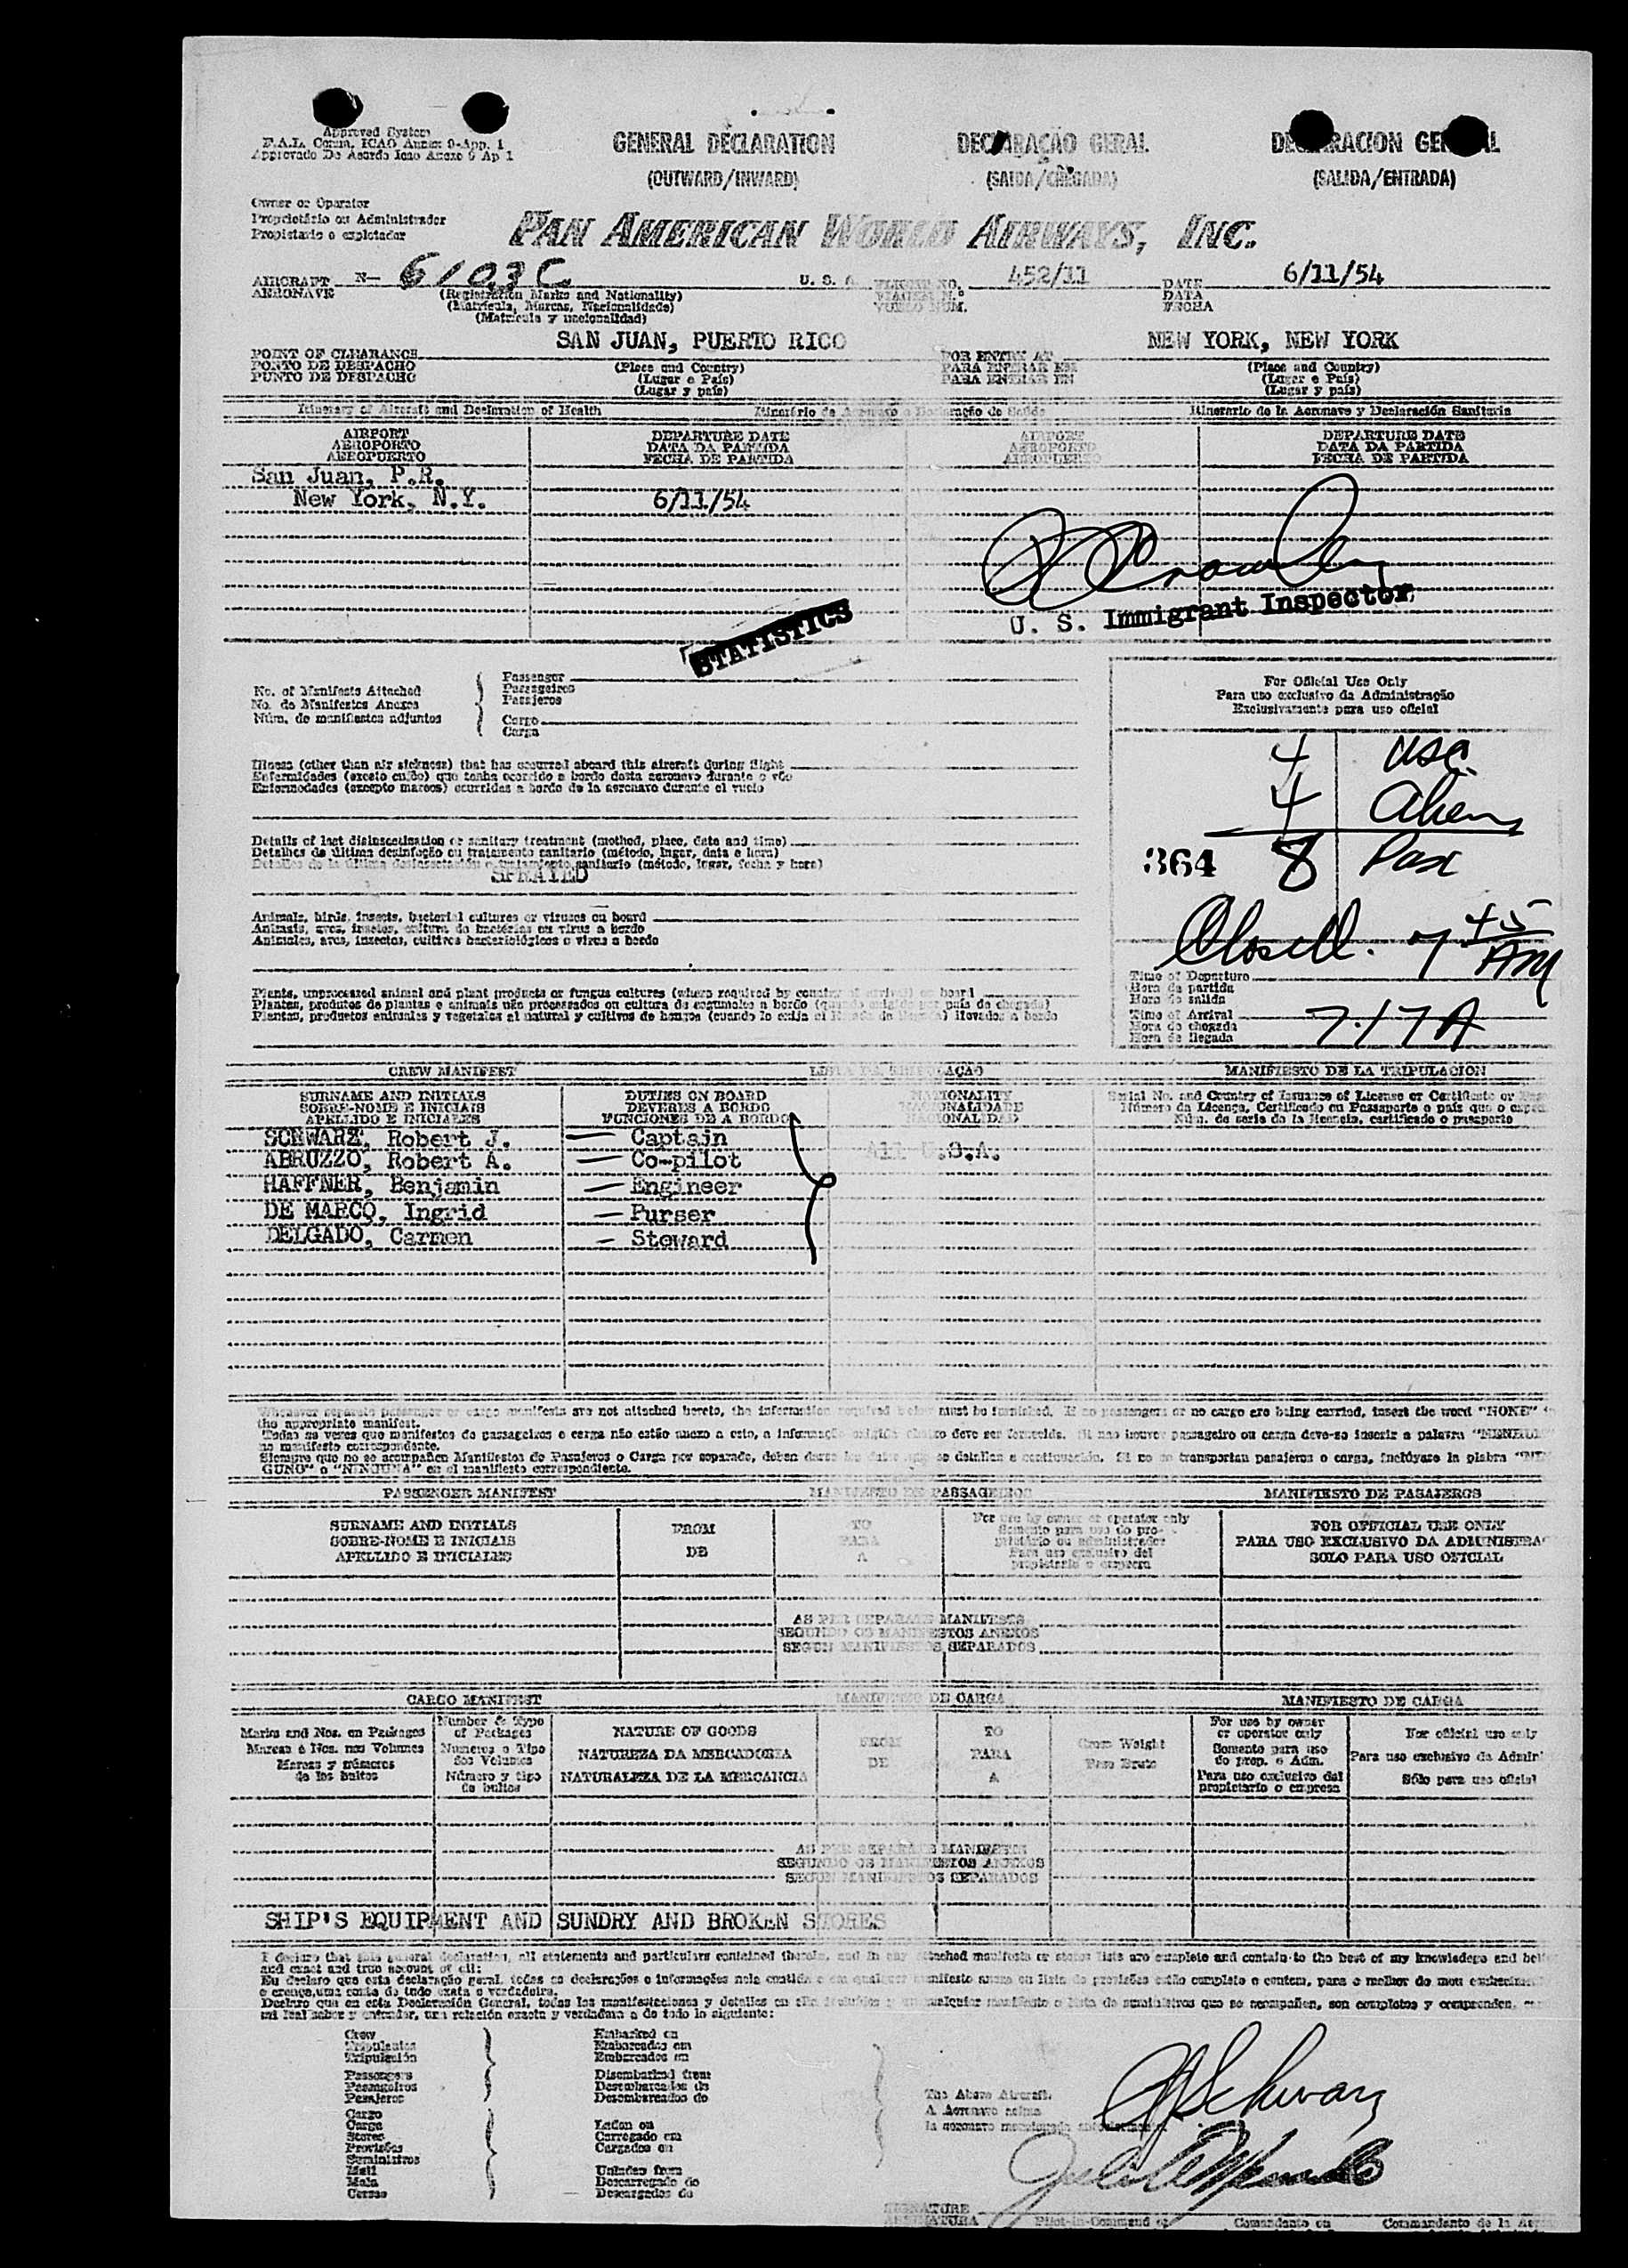 Approved System
F.A.L. Comm. ICAO Annex 9-App. 1
Approvado De Acordo Icao Anexo 9 Ap 1
GENERAL DECLARATION
(OUTWARD/INWARD)
DECLARAÇÃO GERAL
(SAIDA/CHEGADA)
DECLARACION GENERAL
(SALIDA/ENTRADA)
Owner or Operator
Proprietário ou Administrador
Propietario o explotador
PAN AMERICAN WORLD AIRWAYS, INC.
AIRCRAFT N— 6103C U. S. A. FLIGHT NO. 452/11 DATE 6/11/54
AERONAVE (Registration Marks and Nationality) VIAGEM N.º DATA
(Matrícula, Marcas, Nacionalidade) VUELO NUM. FECHA
(Matrícula y nacionalidad)
SAN JUAN, PUERTO RICO NEW YORK, NEW YORK
POINT OF CLEARANCE FOR ENTRY AT
PONTO DE DESPACHO (Place and Country) PARA ENTRAR EM (Place and Country)
PUNTO DE DESPACHO (Lugar e País) PARA ENTRAR EN (Lugar e País)
(Lugar y país) (Lugar y país)
Itinerary of Aircraft and Declaration of Health Itinerário da Aeronave e Declaração de Saúde Itinerario de la Aeronave y Declaración Sanitaria
AIRPORT DEPARTURE DATE AIRPORT DEPARTURE DATE
AEROPORTO DATA DA PARTIDA AEROPORTO DATA DA PARTIDA
AEROPUERTO FECHA DE PARTIDA AEROPUERTO FECHA DE PARTIDA
San Juan, P.R.
New York, N.Y. 6/11/54
U. S. Immigrant Inspector
STATISTICS
No. of Manifests Attached
No. de Manifestos Anexos
Núm. de manifiestos adjuntos
Passenger
Passageiros
Pasajeros
Cargo
Carga
For Official Use Only
Para uso exclusivo da Administração
Exclusivamente para uso oficial
4 USC
4 Aliens
364 8 Pax
Closed. 7 45 AM
Illness (other than air sickness) that has occurred aboard this aircraft during flight
Enfermidades (exceto enjôo) que tenha ocorrido a bordo desta aeronave durante o vôo
Enfermedades (excepto mareos) ocurridas a bordo de la aeronave durante el vuelo
Details of last disinsectisation or sanitary treatment (method, place, date and time)
Detalhes da última desinfeção ou tratamento sanitario (método, lugar, data e hora)
Detalles de la última desinsectación o tratamiento sanitario (método, lugar, fecha y hora)
SPRAYED
Animals, birds, insects, bacterial cultures or viruses on board
Animais, aves, insetos, cultura de bactérias ou virus a bordo
Animales, aves, insectos, cultivos bacteriológicos o virus a bordo
Plants, unprocessed animal and plant products or fungus cultures (where required by country of arrival) on board
Plantas, produtos de plantas e animais não processados ou cultura de cogumelos a bordo (quando exigido por país da chegada)
Plantas, productos animales y vegetales al natural y cultivos de hongos (cuando lo exija el Estado de llegada) llevados a bordo
Time of Departure
Hora da partida
Hora de salida
Time of Arrival 7:17A
Hora da chegada
Hora de llegada
CREW MANIFEST LISTA DA TRIPULAÇÃO MANIFIESTO DE LA TRIPULACION
SURNAME AND INITIALS DUTIES ON BOARD NATIONALITY Serial No. and Country of Issuance of License or Certificate or
SOBRE-NOME E INICIAIS DEVERES A BORDO NACIONALIDADE Número da Licença, Certificado ou Passaporte e país que o
APELLIDO E INICIALES FUNCIONES DE A BORDO NACIONALIDAD Núm. de serie de la licencia, certificado o pasaporte
SCHWARZ, Robert J. — Captain All U.S.A.
ABRUZZO, Robert A. — Co-pilot
HAFFNER, Benjamin — Engineer
DE MARCO, Ingrid — Purser
DELGADO, Carmen — Steward
Whenever separate passenger or cargo manifests are not attached hereto, the information required below must be furnished. If no passengers or no cargo are being carried, insert the word "NONE"
the appropriate manifest.
Todas as vezes que manifestos de passageiros e carga não estão anexo a esto, a informação exigida abaixo deve ser fornecida. Si nao houver passageiro ou carga deve-se inserir a palavra
no manifesto correspondente.
Siempre que no se acompañen Manifiestos de Pasajeros o Carga por separado, deben darse los datos que se detallan a continuación. Si no se transportan pasajeros o carga, inclúyase la plabra
GUNO" o "NINGUNA" en el manifiesto correspondiente.
PASSENGER MANIFEST MANIFESTO DE PASSAGEIROS MANIFIESTO DE PASAJEROS
SURNAME AND INITIALS FROM TO For use by owner or operator only FOR OFFICIAL USE ONLY
SOBRE-NOME E INICIAIS DE PARA Somente para uso do pro- PARA USO EXCLUSIVO DA ADMINISTRA
APELLIDO E INICIALES A prietário ou administrador SOLO PARA USO OFICIAL
Para uso exclusivo del
propietario o empresa
AS PER SEPARATE MANIFESTS
SEGUNDO OS MANIFESTOS ANEXOS
SEGUN MANIFIESTOS SEPARADOS
CARGO MANIFEST MANIFESTO DE CARGA MANIFIESTO DE CARGA
Marks and Nos. on Packages
Marcas e Nos. nos Volumes
Marcas y números
de los bultos
Number & Type
of Packages
Numeros e Tipo
dos Volumes
Número y tipo
de bultos
NATURE OF GOODS
NATUREZA DA MERCADORIA
NATURALEZA DE LA MERCANCIA
FROM
DE
TO
PARA
A
Gross Weight
Peso Bruto
For use by owner
or operator only
Somente para uso
do prop. e Adm.
Para uso exclusivo del
propietario o empresa
For official use only
Para uso exclusivo da Admin
Sólo para uso oficial
AS PER SEPARATE MANIFESTS
SEGUNDO OS MANIFESTOS ANEXOS
SEGUN MANIFIESTOS SEPARADOS
SHIP'S EQUIPMENT AND SUNDRY AND BROKEN STORES
I declare that this general declaration, all statements and particulars contained therein, and in any attached manifests or stores lists are complete and contain to the best of my knowledge and
and exact and true account of all:
Eu declaro que esta declaração geral, todas as declarações e informações nela contida e em qualquer manifesto anexo ou lista de provisões estão completo e contem, para o melhor de meu
e crença, uma conta de tudo exata e verdadeira.
Declaro que en esta Declaración General, todas las manifestaciones y detalles en ella incluídos y en cualquier manifiesto o lista de suministros que se acompañen, son completos y comprenden,
mi leal saber y entender, una relación exacta y verdadera a de todo lo siguiente:
Crew
Tripulantes
Tripulación
Passengers
Passageiros
Pasajeros
Cargo
Carga
Stores
Provisões
Suministros
Mail
Mala
Correo
Embarked on
Embarcados em
Embarcados en
Disembarked from
Desembarcados de
Desembarcados de
Laden on
Carregado em
Cargados en
Unladen from
Descarregado de
Descargados de
The Above Aircraft.
A Aeronave acima
la aeronave mencionada anteriormente
RJSchwarz
SIGNATURE
ASSINATURA Pilot-in-Command or Comandante ou Commandante de la